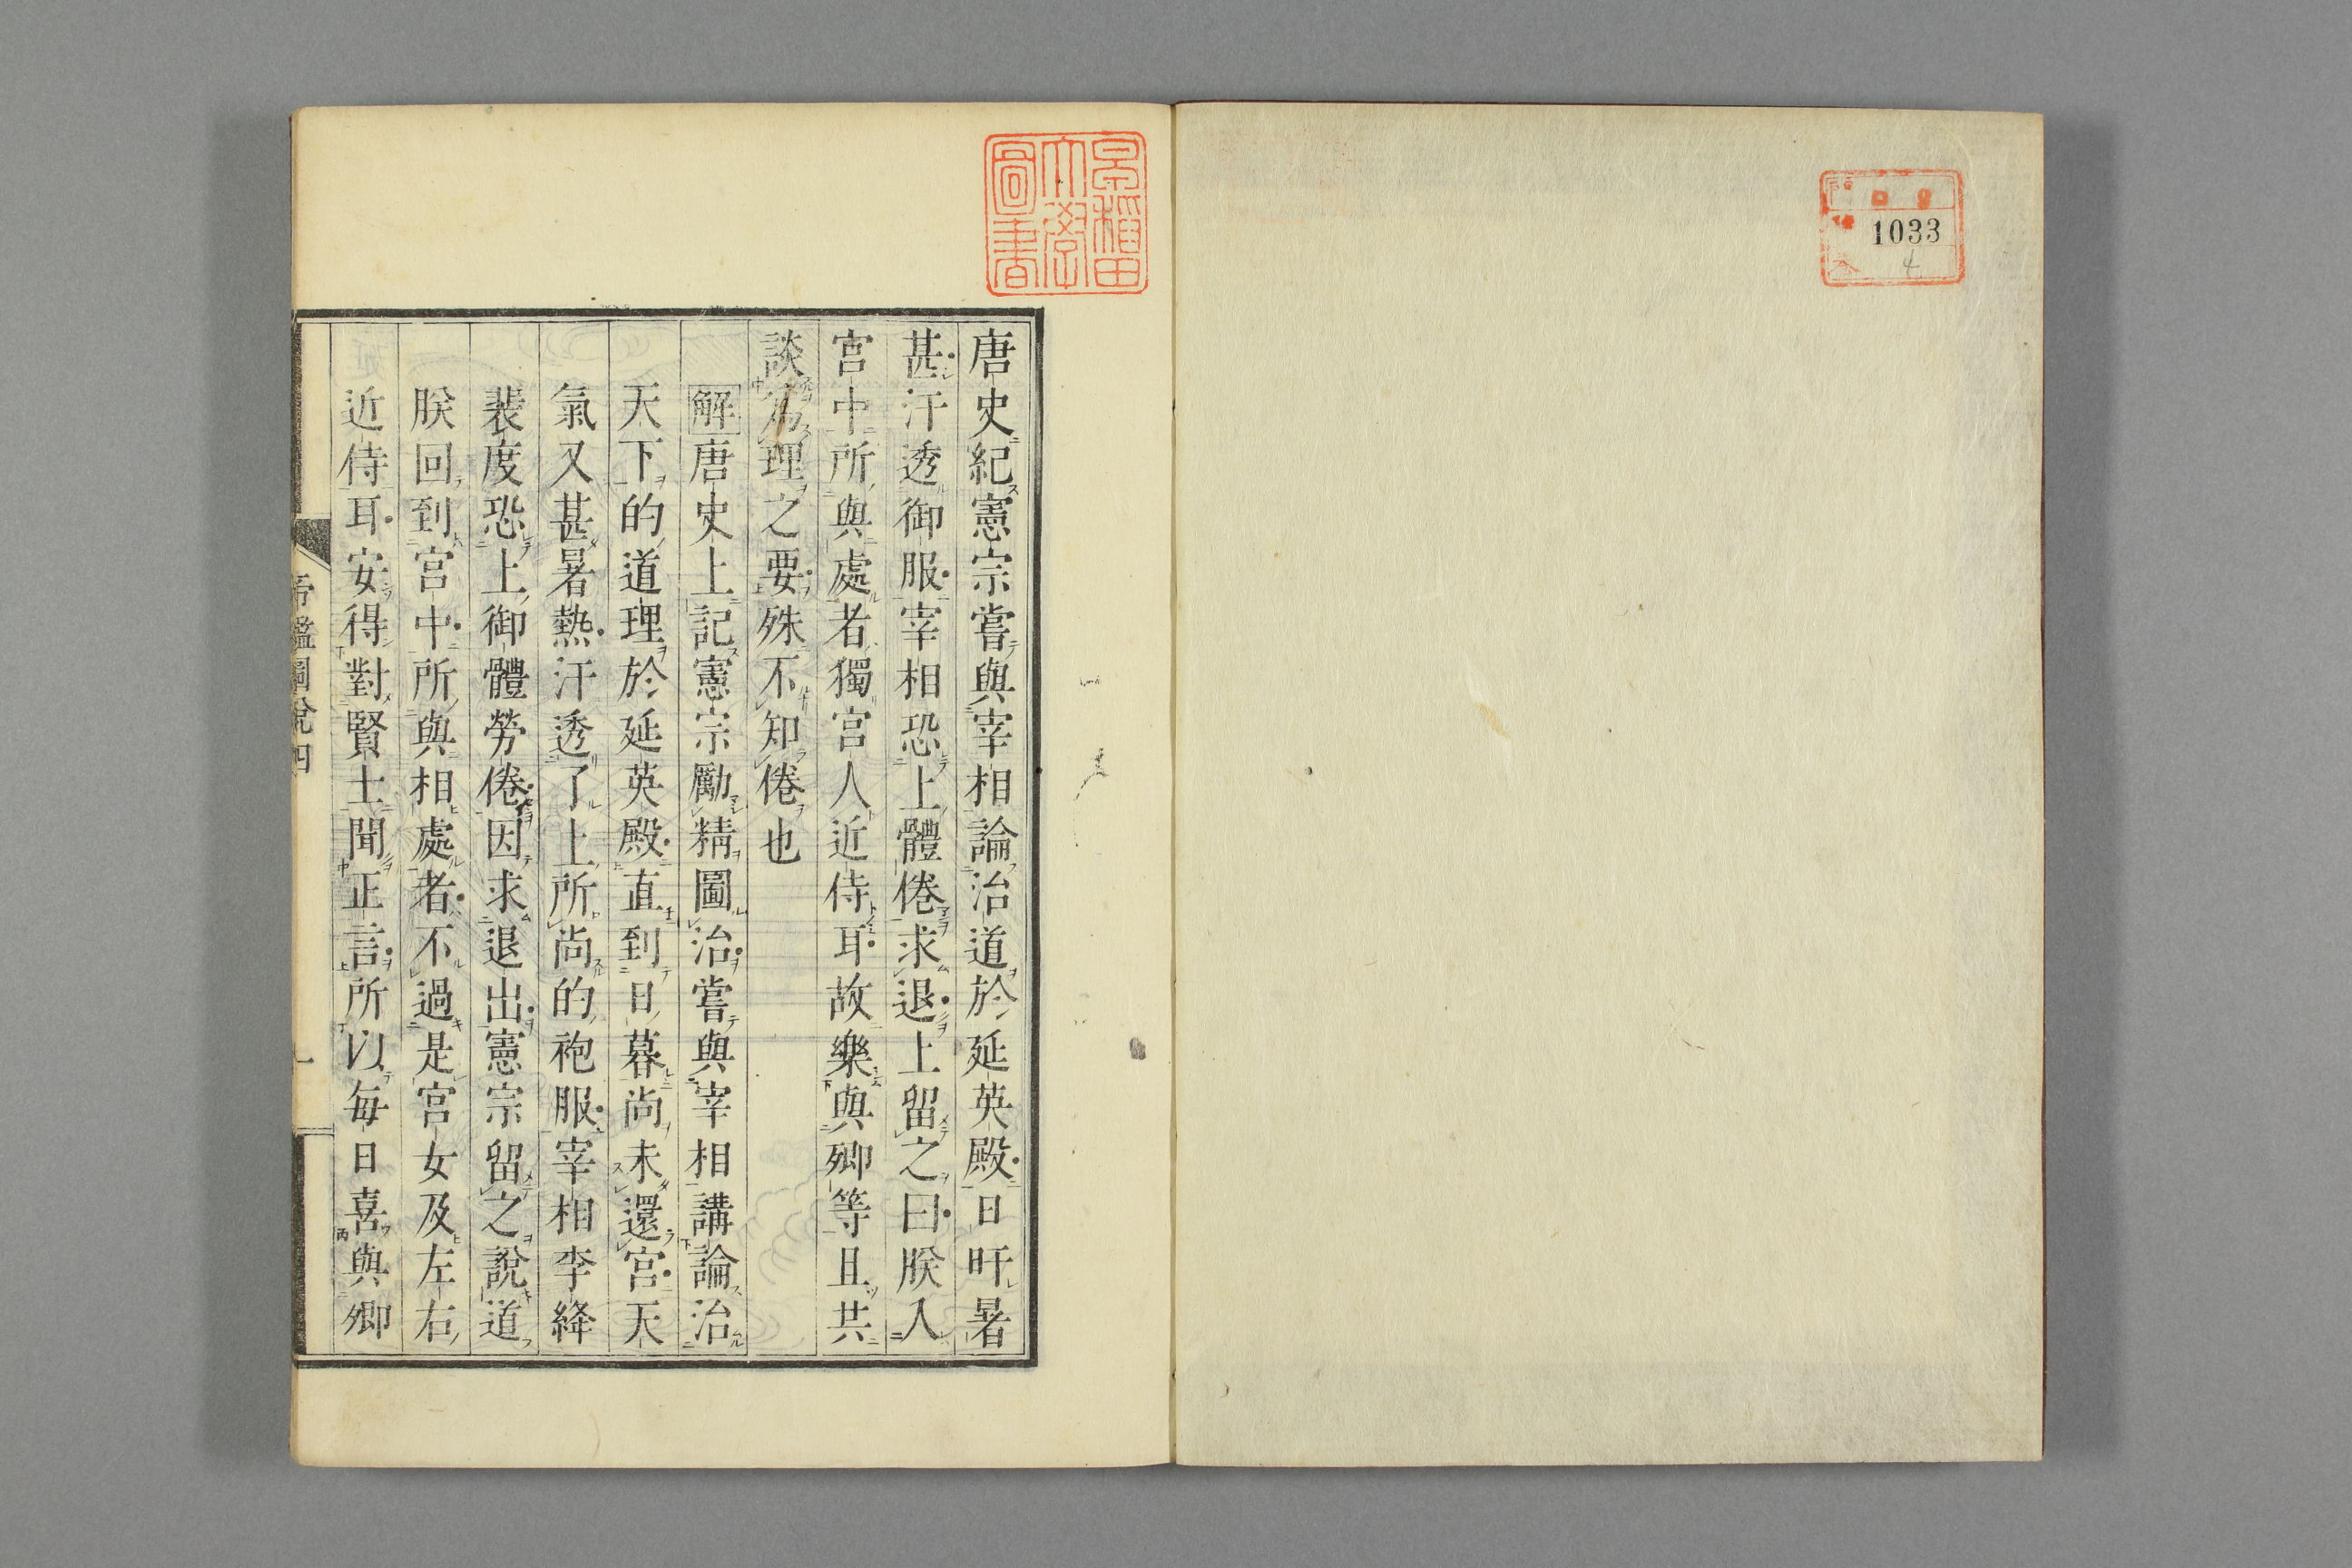 1033
4
早稲田
大學
圖書
唐史紀憲宗嘗與宰相論治道於延英殿日旰暑
甚汗透御服宰相恐上體倦求退上留之曰朕入
宮中所與處者獨宮人近侍耳故樂與卿等且共
談為理之要殊不知倦也
解唐史上記憲宗勵精圖治嘗與宰相講論治
天下的道理於延英殿直到日暮尚未還宮天
氣又甚暑熱汗透了上所尚的袍服宰相李絳
裴度恐上御體勞倦因求退出憲宗留之說道
朕回到宮中所與相處者不過是宮女及左右
近侍耳安得對賢士聞正言所以每日喜與卿
帝鑑圖說四
一